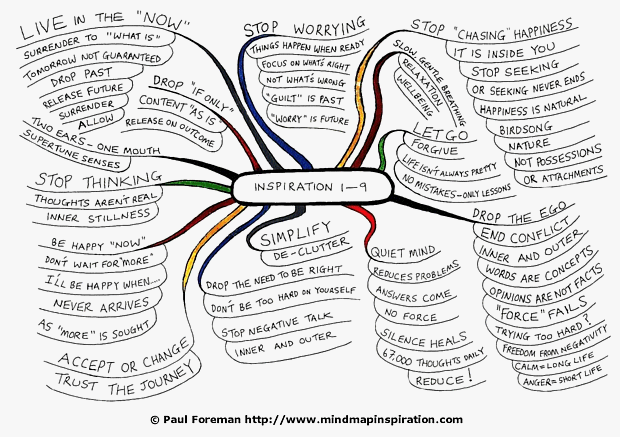 LIVE IN THE "NOW"
SURRENDER TO "WHAT IS"
TOMORROW NOT GUARANTEED
DROP PAST
RELEASE FUTURE
SURRENDER
ALLOW
TWO EARS - ONE MOUTH
SUPERTUNE SENSES
DROP "IF ONLY"
CONTENT "AS IS"
RELEASE ON OUTCOME
STOP WORRYING
THINGS HAPPEN WHEN READY
FOCUS ON WHAT'S RIGHT
NOT WHAT'S WRONG
"GUILT" IS PAST
"WORRY" IS FUTURE
SLOW GENTLE BREATHING
RELAXATION
WELLBEING
STOP "CHASING" HAPPINESS
IT IS INSIDE YOU
STOP SEEKING
OR SEEKING NEVER ENDS
HAPPINESS IS NATURAL
BIRDSONG
NATURE
NOT POSSESSIONS
OR ATTACHMENTS
LET GO
FORGIVE
LIFE ISN'T ALWAYS PRETTY
NO MISTAKES - ONLY LESSONS
INSPIRATION 1-9
STOP THINKING
THOUGHTS AREN'T REAL
INNER STILLNESS
BE HAPPY "NOW"
DON'T WAIT FOR "MORE"
I'LL BE HAPPY WHEN....
NEVER ARRIVES
AS "MORE" IS SOUGHT
ACCEPT OR CHANGE
TRUST THE JOURNEY
SIMPLIFY
DE-CLUTTER
DROP THE NEED TO BE RIGHT
DON'T BE TOO HARD ON YOURSELF
STOP NEGATIVE TALK
INNER AND OUTER
QUIET MIND
REDUCES PROBLEMS
ANSWERS COME
NO FORCE
SILENCE HEALS
67,000 THOUGHTS DAILY
REDUCE!
DROP THE EGO
END CONFLICT
INNER AND OUTER
WORDS ARE CONCEPTS
OPINIONS ARE NOT FACTS
"FORCE" FAILS
TRYING TOO HARD?
FREEDOM FROM NEGATIVITY
CALM = LONG LIFE
ANGER = SHORT LIFE
© Paul Foreman http://www.mindmapinspiration.com